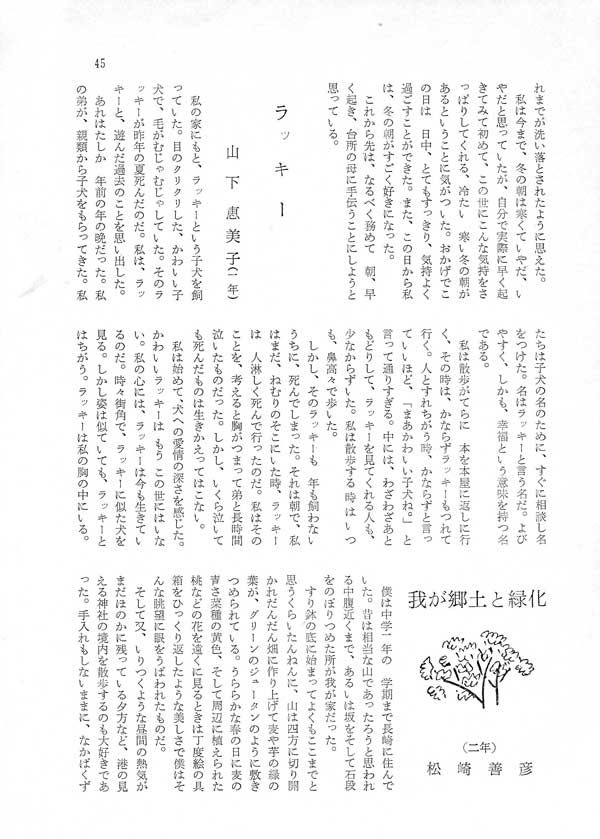 45
れまでが洗い落とされたように思えた。
私は今まで、冬の朝は寒くていやだ、い
やだと思っていたが、自分で実際に早く起
きてみて初めて、この世にこんな気持をさ
っぱりしてくれる、冷たい　寒い冬の朝が
あるということに気がついた。おかげでこ
の日は　日中、とてもすっきり、気持よく
過ごすことができた。また、この日から私
は、冬の朝がすごく好きになった。
これから先は、なるべく務めて　朝、早
く起き、台所の母に手伝うことにしようと
思っている。
ラッキー
山下恵美子(一年)
私の家にもと、ラッキーという子犬を飼
っていた。目のクリクリした、かわいい子
犬で、毛がむじゃむじゃしていた。そのラ
ッキーが昨年の夏死んだのだ。私は、ラッ
キーと、遊んだ過去のことを思い出した。
あれはたしか　年前の年の晩だった。私
の弟が、親類から子犬をもらってきた。私
たちは子犬の名のために、すぐに相談し名
をつけた。名はラッキーと言う名だ。よび
やすく、しかも、幸福という意味を持つ名
である。
私は散歩がてらに　本を本屋に返しに行
く、その時は、かならずラッキーもつれて
行く。人とすれちがう時、かならずと言っ
ていいほど、「まあかわいい子犬ね。」と
言って通りすぎる。中には、わざわざあと
もどりして、ラッキーを見てくれる人も、
少なからずいた。私は散歩する時はいつ
も、鼻高々で歩いた。
しかし、そのラッキーも　年も飼わない
うちに、死んでしまった。それは朝で、私
はまだ、ねむりのそこにいた時、ラッキー
は　人淋しく死んで行ったのだ。私はその
ことを、考えると胸がつまって弟と長時間
泣いたものだった。しかし、いくら泣いて
も死んだものは生きかえってはこない。
私は始めて、犬への愛情の深さを感じた。
かわいいラッキーは　もうこの世にはいな
い。私の心には、ラッキーは今も生きてい
るのだ。時々街角で、ラッキーに似た犬を
見る。しかし姿は似ていても、ラッキーと
はちがう。ラッキーは私の胸の中にいる。
我が郷土と緑化
(二年)
松崎善彦
僕は中学一年の　学期まで長崎に住んで
いた。昔は相当な山であったろうと思われ
る中腹近くまで、あるいは坂をそして石段
をのぼりつめた所が我が家だった。
すり鉢の底に始まってよくもここまでと
思うくらいたんねんに、山は四方に切り開
かれだんだん畑に作り上げて麦や芋の緑の
葉が、グリーンのジュータンのように敷き
つめられている。うららかな春の日に麦の
青さ菜種の黄色、そして周辺に植えられた
桃などの花を遠くに見るときは丁度絵の具
箱をひっくり返したような美しさで僕はそ
んな眺望に眼をうばわれたものだ。
そして又、いりつくような昼間の熱気が
まだほのかに残っている夕方など、港の見
える神社の境内を散歩するのも大好きであ
った。手入れもしないままに、なかばくず